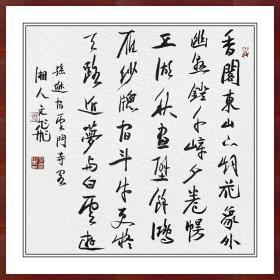 香閣東山下烟花象外
幽懸鐙千嶂夕卷幔
五湖秋畫壁餘鴻
雁紗牕宿斗牛更疑
天路近夢与白雲遊
孫逖宿雲門寺閣
湘人